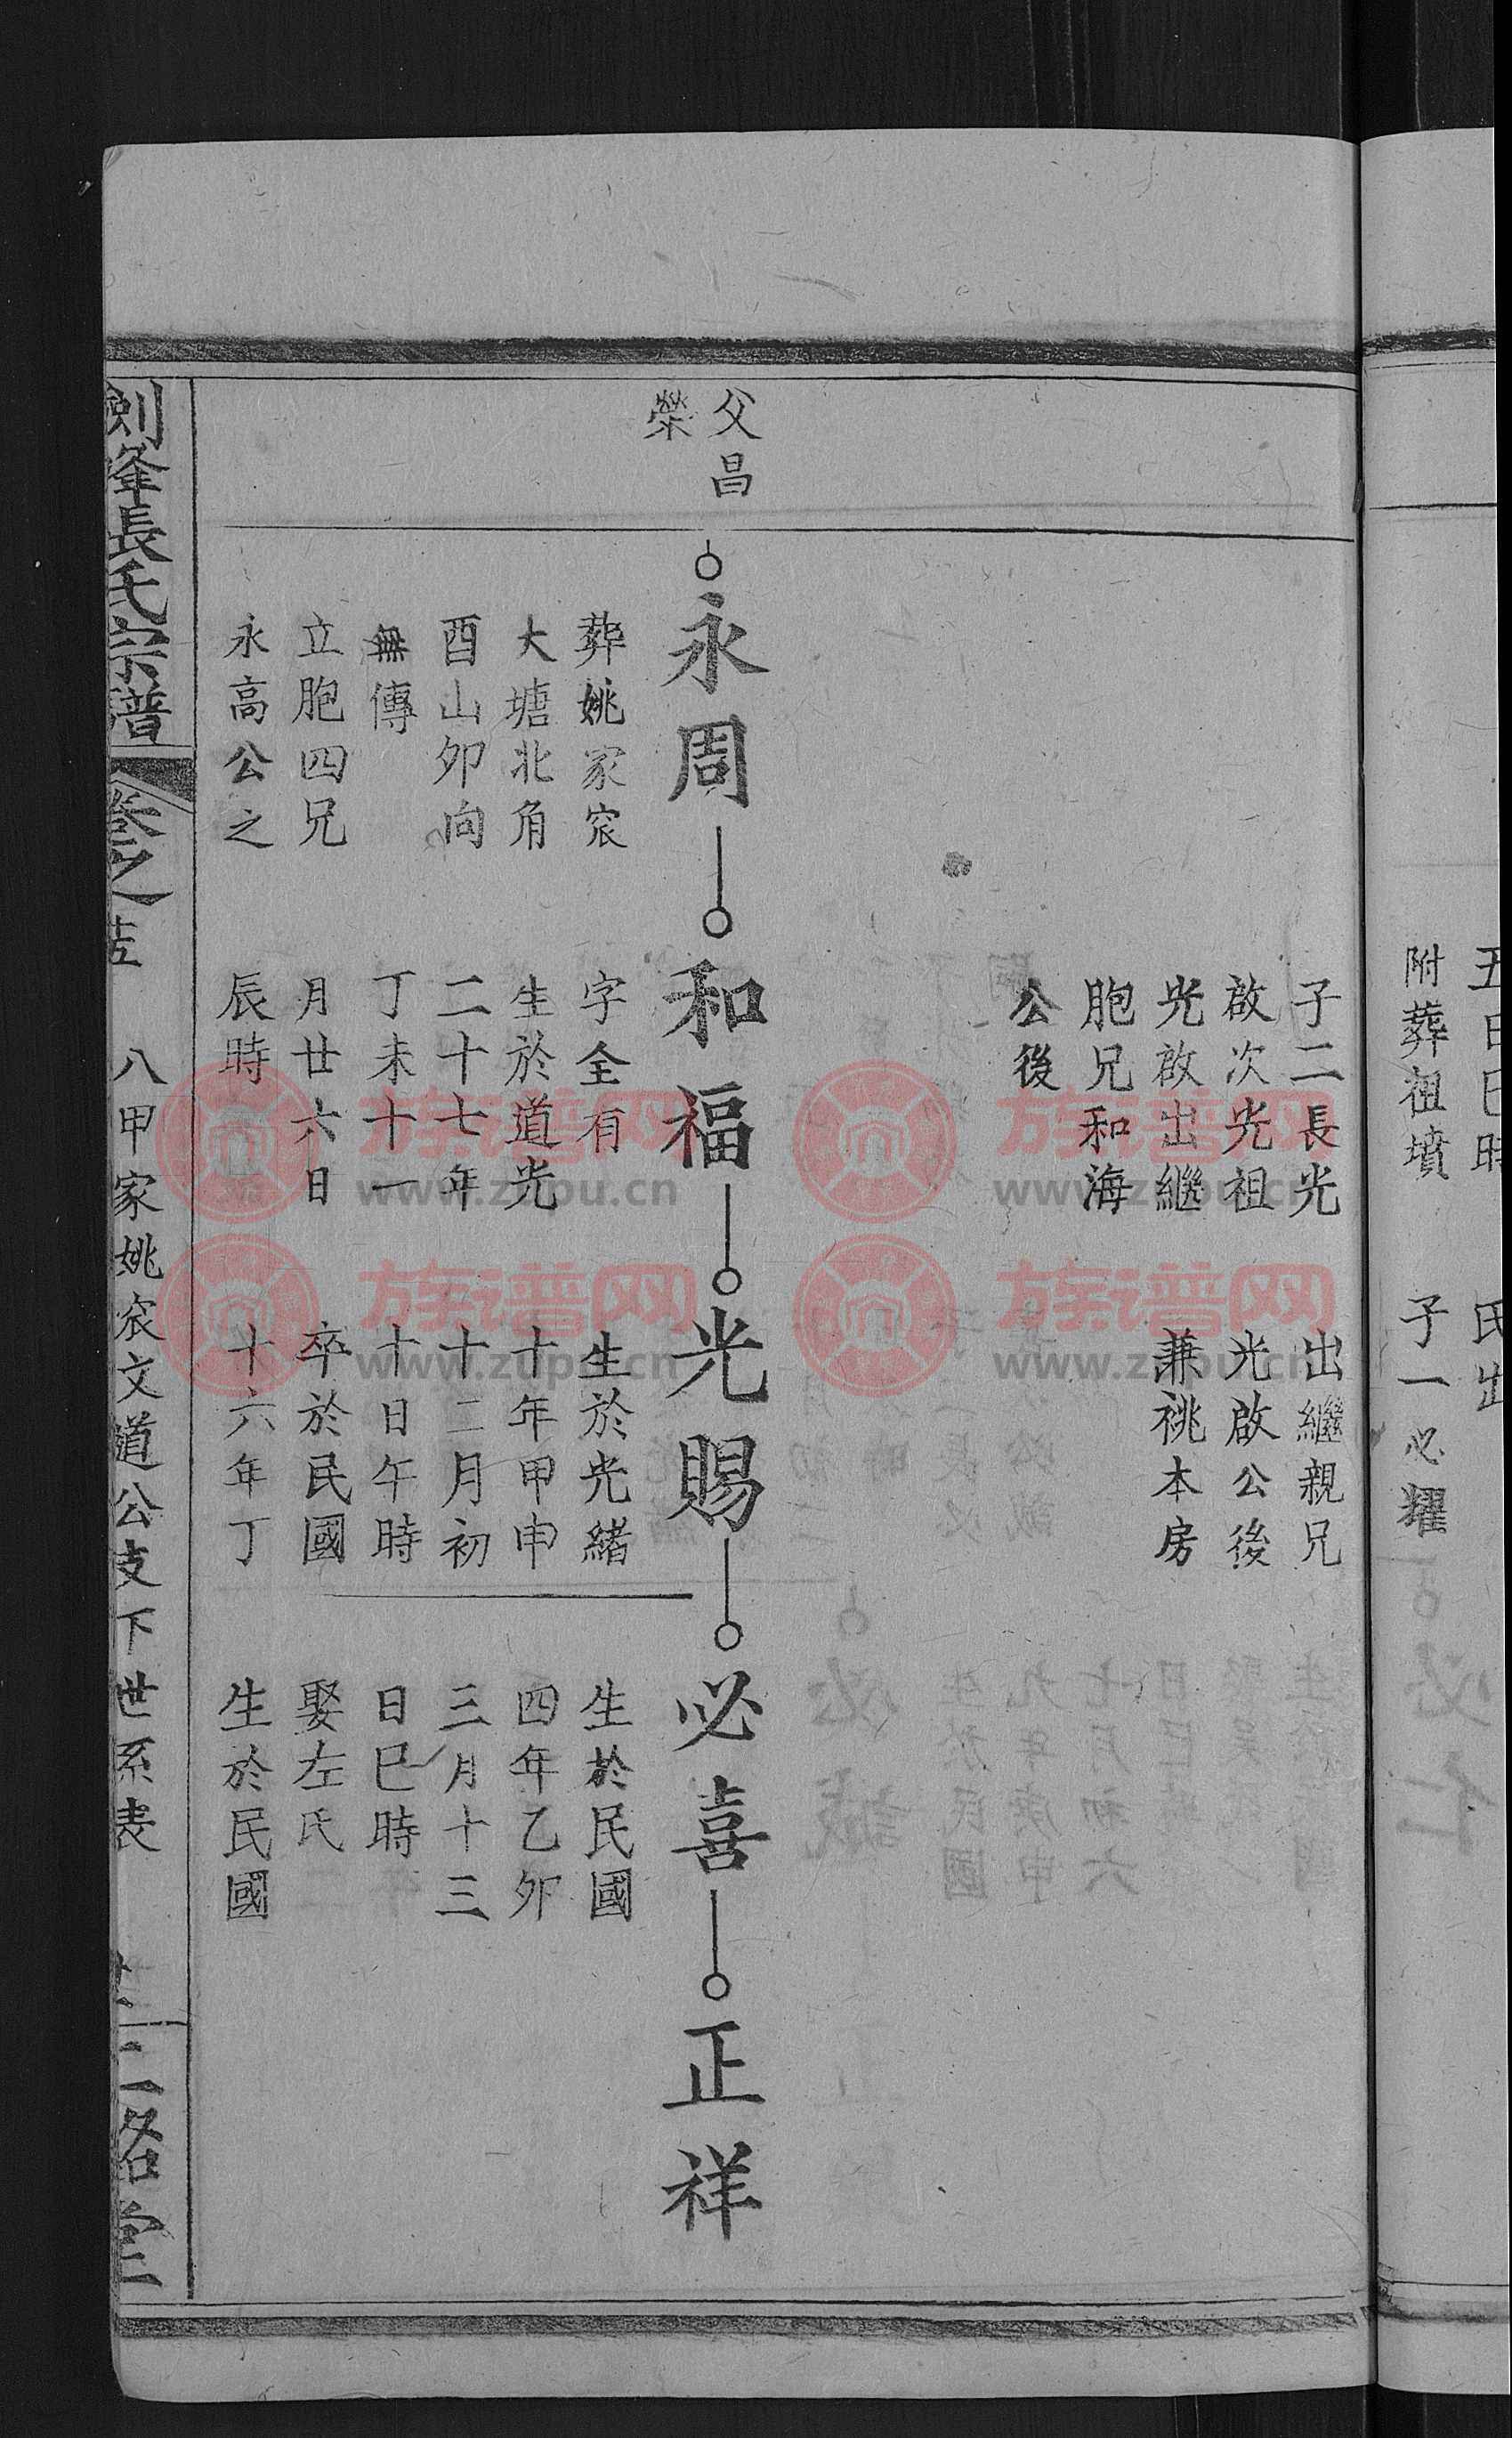 五日巳時
附葬祖墳
氏出
子一必耀
子二長光
啟次光祖
光啟出繼
胞兄和海
公後
出繼親兄
光啟公後
兼祧本房
父昌
榮
永周
葬姚家泉
大塘北角
酉山夘向
無傳
立胞四兄
永高公之
和福
字全有
生於道光
二十七年
丁未十一
月廿六日
辰時
光賜
生於光緒
十年甲申
十二月初
十日午時
卒於民國
十六年丁
必喜
生於民國
四年乙夘
三月十三
日巳時
娶左氏
生於民國
正祥
劍峯長氏宗譜
卷之
八甲家姚泉文道公支下世系表
堂
族谱网
www.zupu.cn
族谱网
www.zupu.cn
族谱网
www.zupu.cn
族谱网
www.zupu.cn